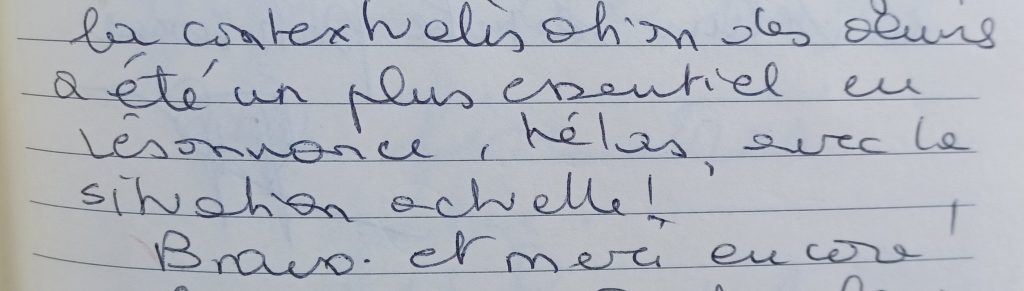 la contextualisation des œuvres
a été un plus essentiel en
résonnance, hélas, avec la
situation actuelle !
Bravo. et merci encore !